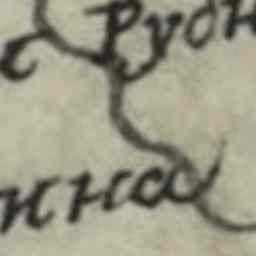 с Рудн
нна